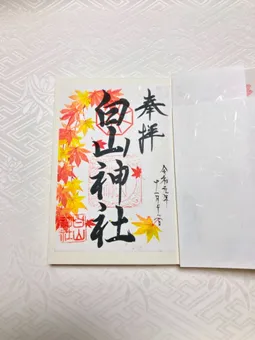 奉拝
白山神社
令和元年
十一月十六
白山